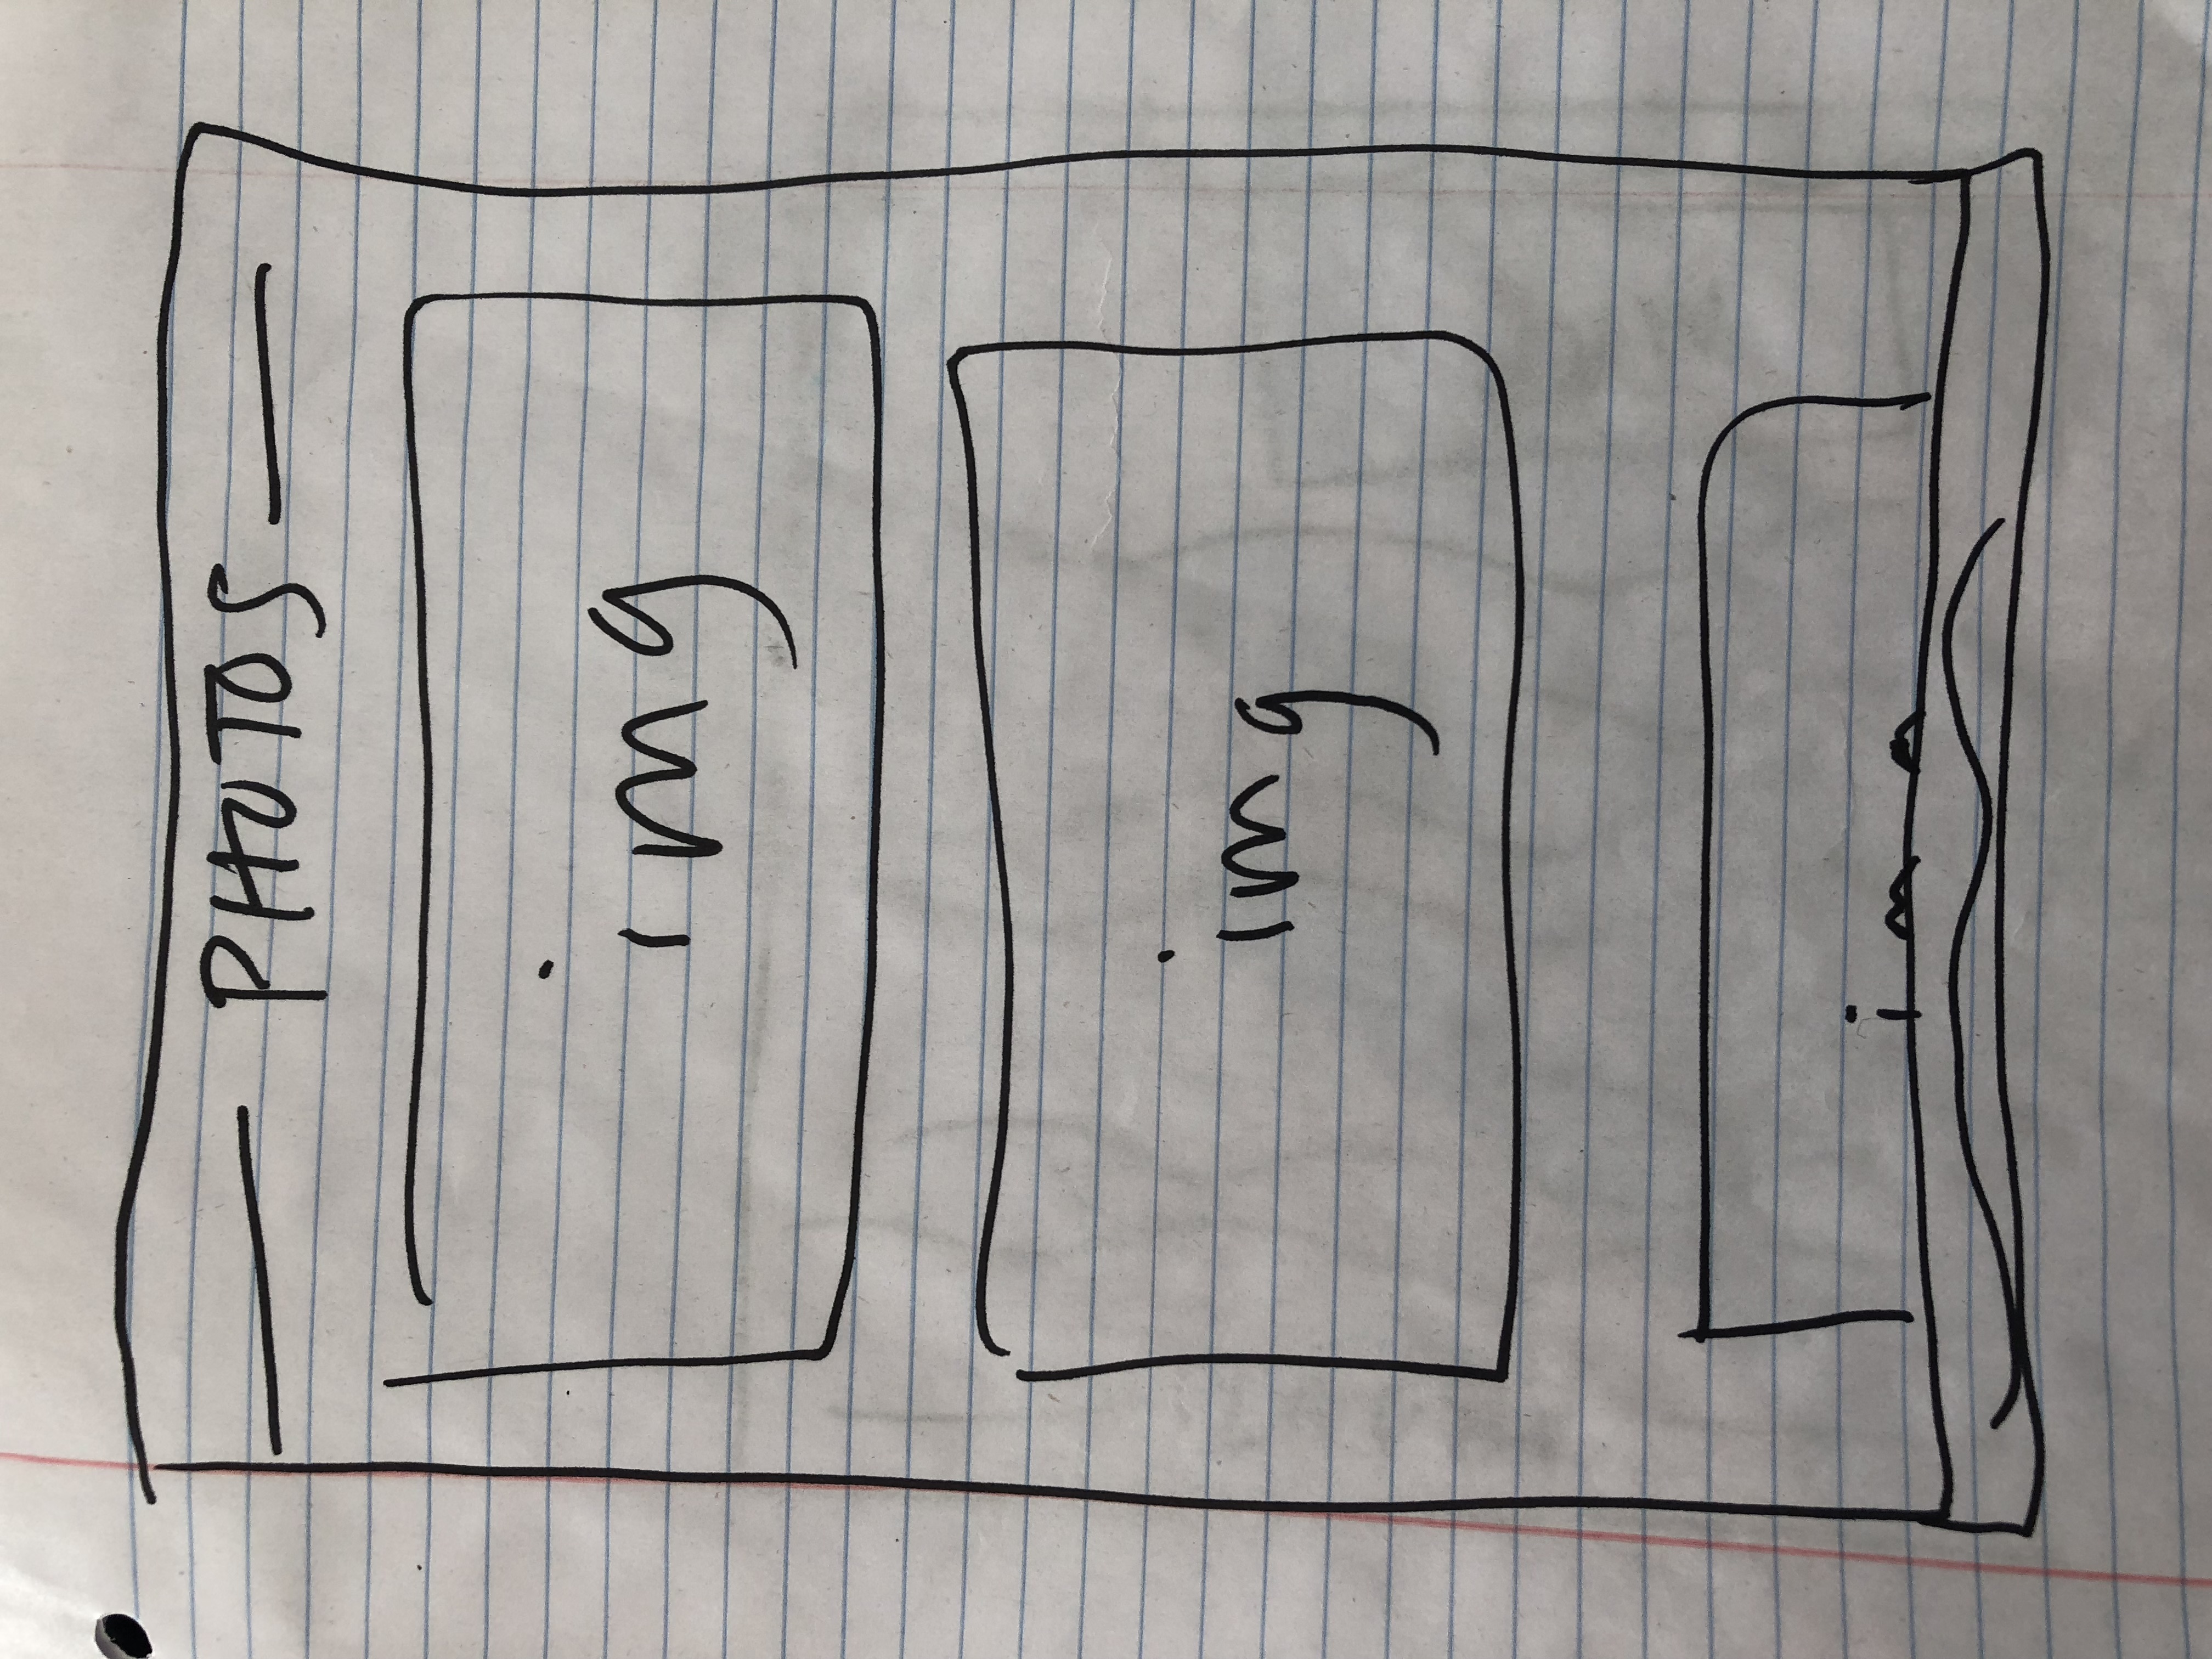 PHOTOS
img
img